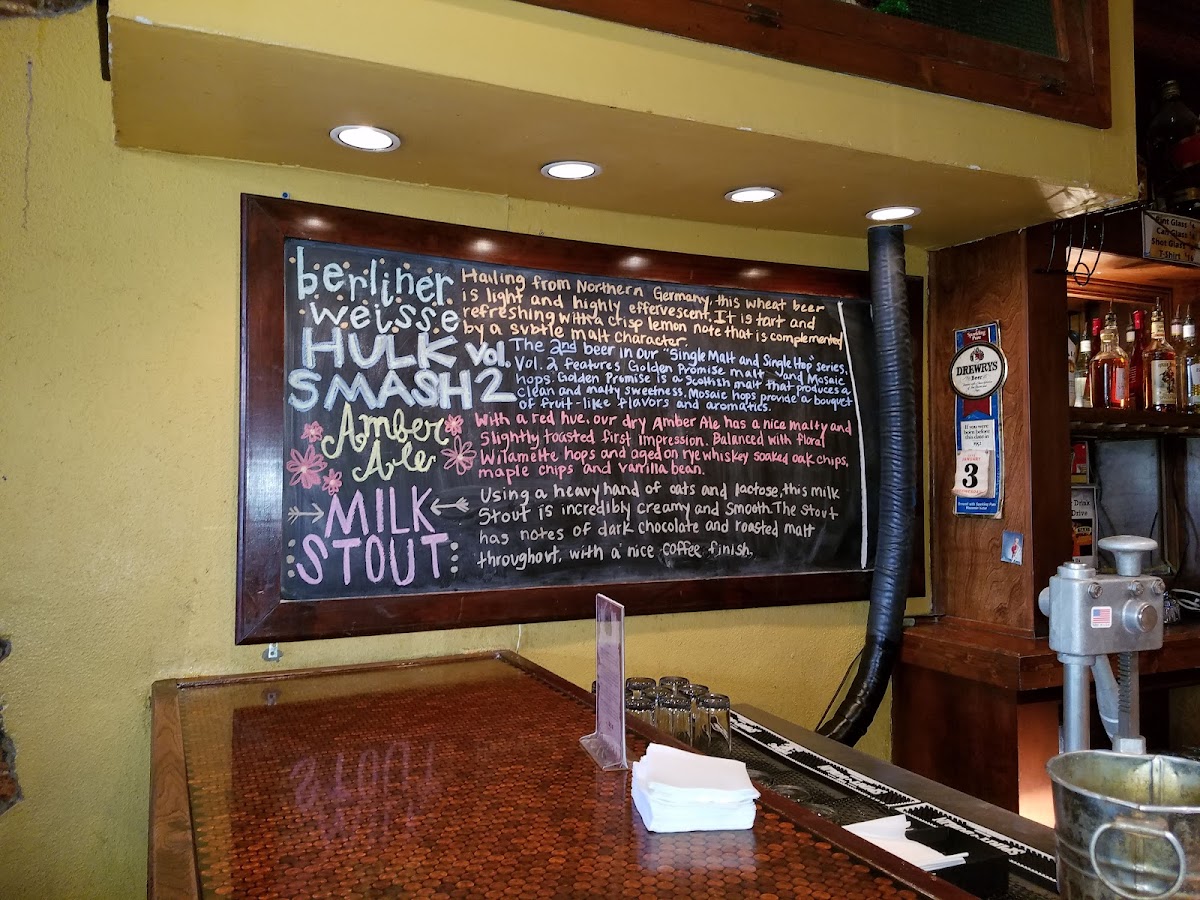 berliner
weisse
Hailing from Northern Germany, this wheat beer
is light and highly effervescent. It is tart and
refreshing with a crisp lemon note that is complemented
by a subtle malt character.
HULK Vol.
SMASH 2
The 2nd beer in our "Single Malt and Single Hop" series.
Vol. 2 features Golden Promise malt and Mosaic
hops. Golden Promise is a Scottish malt that produces a
clean and malty sweetness. Mosaic hops provide a bouquet
of fruit-like flavors and aromatics.
Amber
Ale
With a red hue, our dry Amber Ale has a nice malty and
slightly toasted first impression. Balanced with floral
Wilamette hops and aged on rye whiskey soaked oak chips,
maple chips and vanilla bean.
MILK
STOUT
Using a heavy hand of oats and lactose, this milk
Stout is incredibly creamy and smooth. The stout
has notes of dark chocolate and roasted malt
throughout, with a nice coffee finish.
DREWRYS
Beer
If you were
born before
this date in
JANUARY
3
Pint Glass
Can Glass
Shot Glass
T-Shirt
Drink
Drive